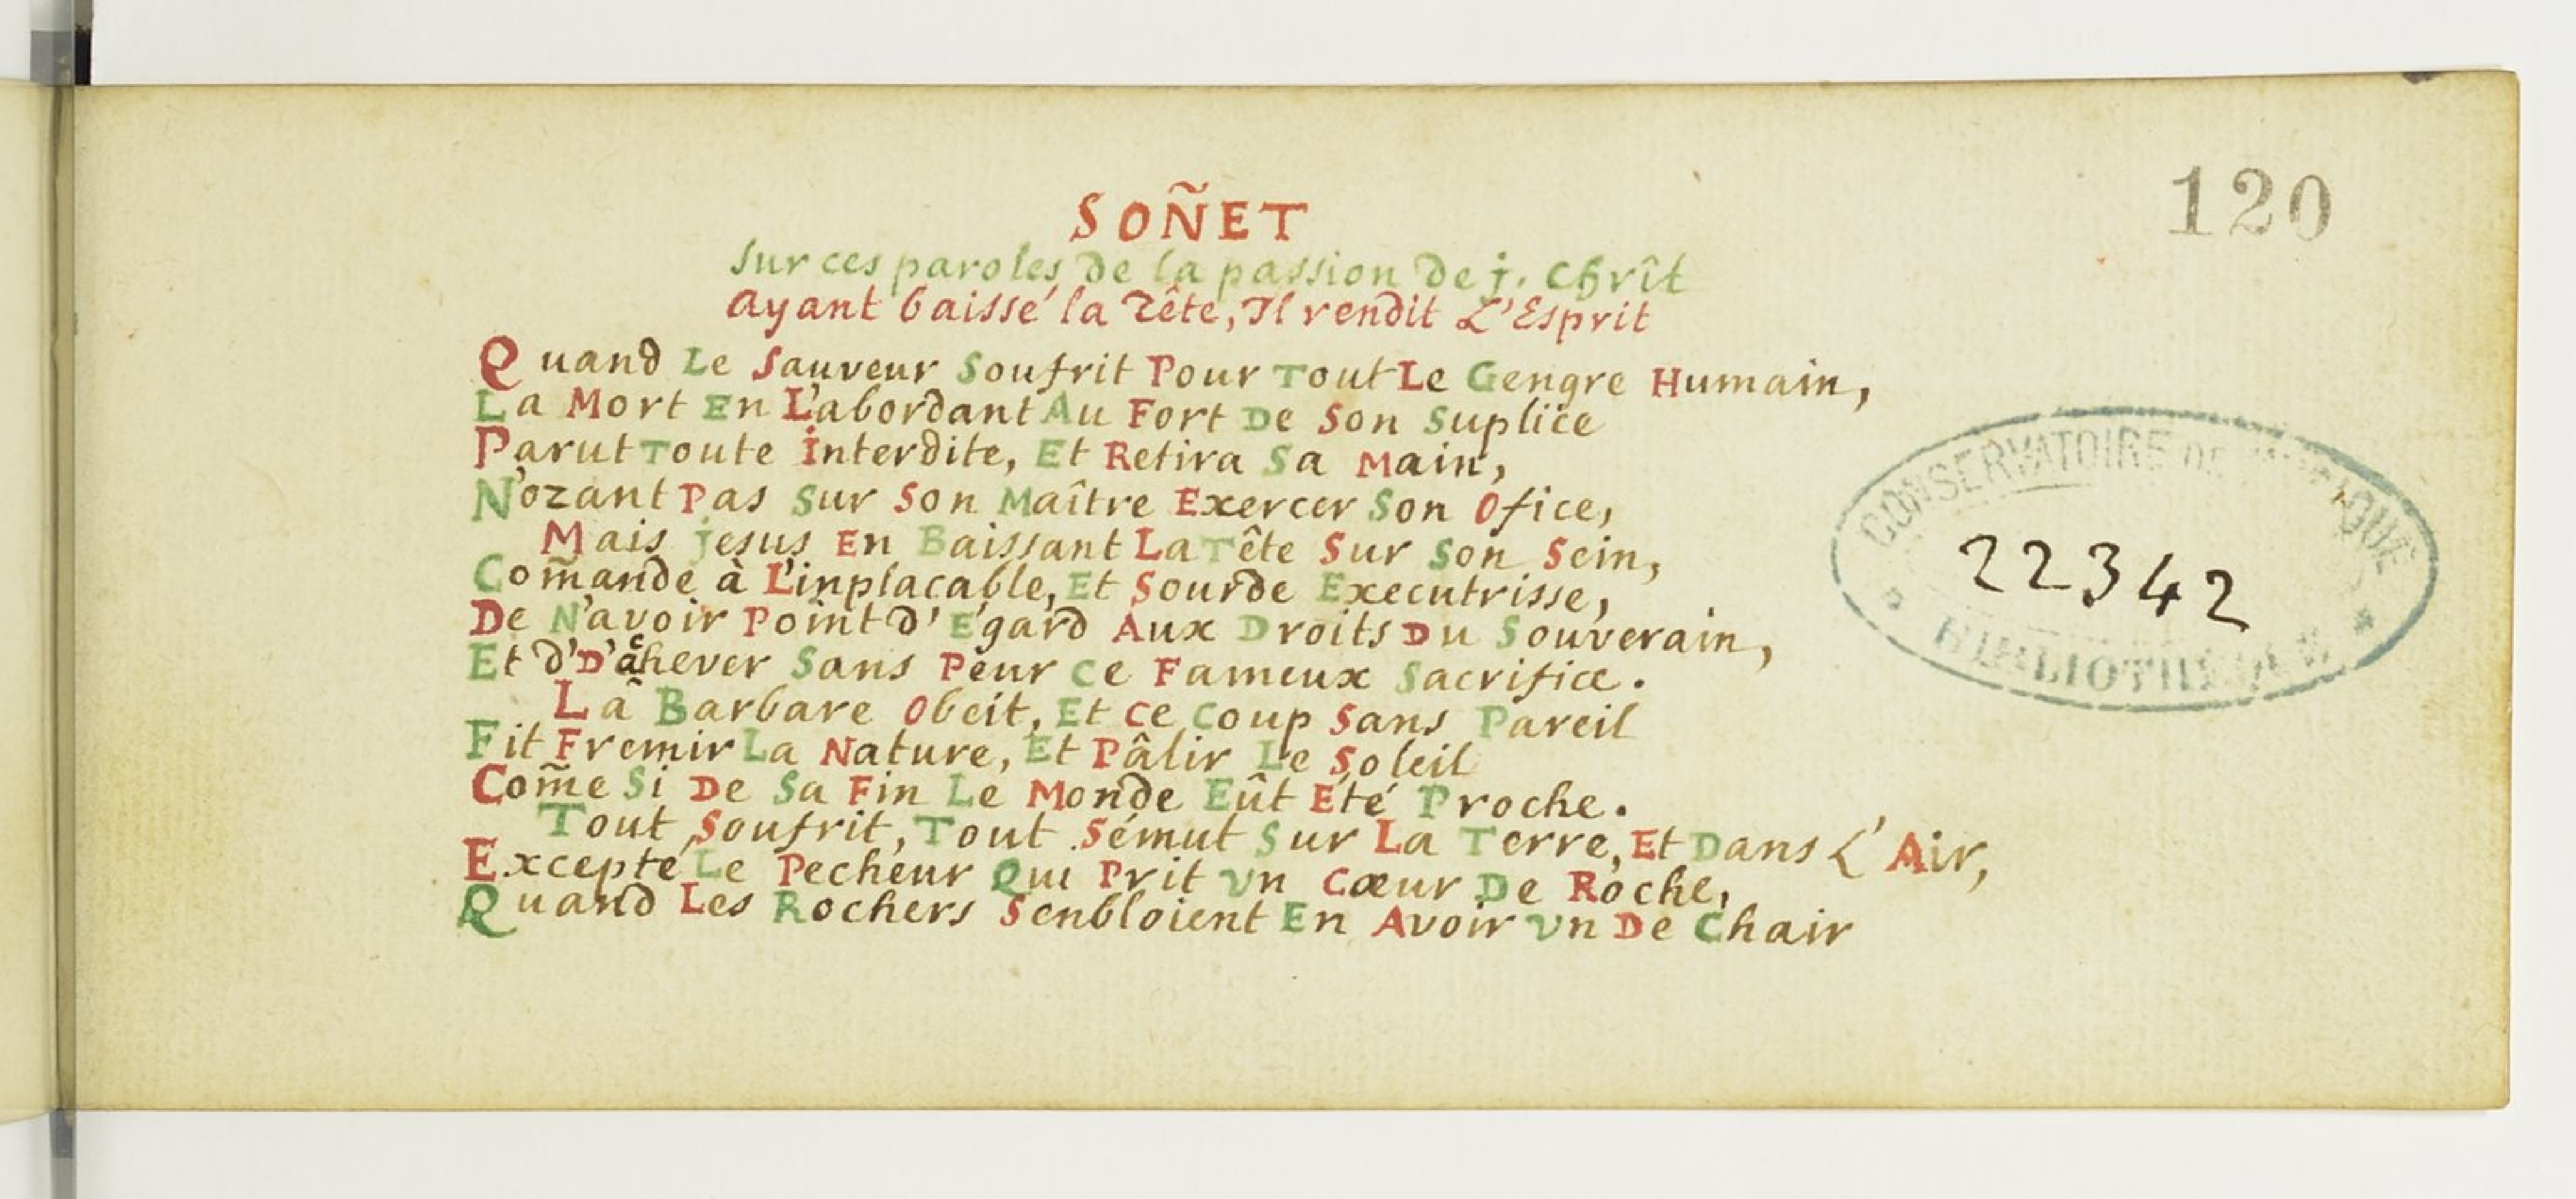 120
SOÑET
sur ces paroles de la passion de j. Chrît
ayant baissé la Tête, Il rendit L'Esprit
Quand Le Sauveur Soufrit Pour Tout Le Gengre Humain,
La Mort En L'abordant Au Fort De Son Suplice
Parut Toute interdite, Et Retira Sa Main,
N'ozant Pas Sur Son Maître Exercer Son Ofice,
Mais jesus En Baissant La Tête Sur Son Sein,
Com̃ande à L'inplacable, Et Sourde Executrisse,
De N'avoir Point d'Egard Aux Droits Du Souverain,
Et d'D'achever Sans Peur Ce Fameux Sacrifice.
La Barbare Obeit, Et Ce Coup Sans Pareil
Fit Fremir La Nature, Et Pâlir Le Soleil
Com̃e Si De Sa Fin Le Monde Eût Eté Proche.
Tout Soufrit, Tout Sémut Sur La Terre, Et Dans L'Air,
Excepté Le Pecheur Qui Prit vn Cœur De Roche,
Quand Les Rochers Senbloient En Avoir vn De Chair
CONSERVATOIRE DE MUSIQUE
22342
BIBLIOTHÈQUE